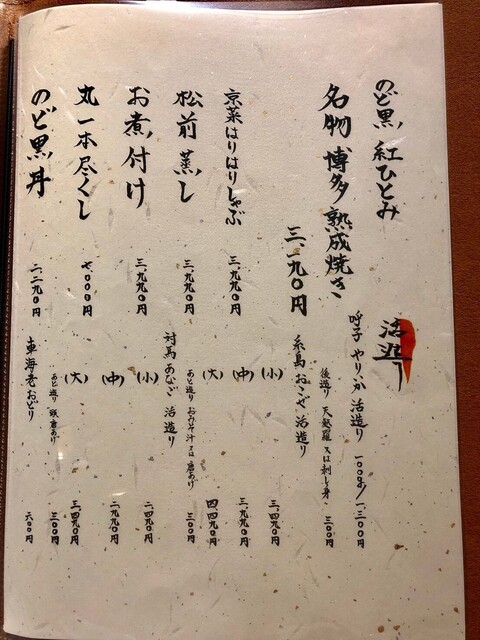 のど黒 紅ひとみ
名物 博多熟成焼き
三、一九〇円
京菜はりはりしゃぶ
三、九九〇円
松前蒸し
三、九九〇円
お煮付け
三、九九〇円
丸一本尽くし
七〇〇〇円
のど黒丼
二、二九〇円
活造り
呼子 やりいか 活造り 一〇〇g/一、三〇〇円
後造り 天麩羅 又は刺し身 三〇〇円
糸島 おこぜ 活造り
(小) 三、四九〇円
(中) 三、九九〇円
(大) 四、四九〇円
あと造り おみそ汁 又は 唐あげ 三〇〇円
対馬 あなご 活造り
(小) 二、四九〇円
(中) 二、九九〇円
(大) 三、四九〇円
あと造り 唐あげ 三〇〇円
車海老おどり 六〇〇円